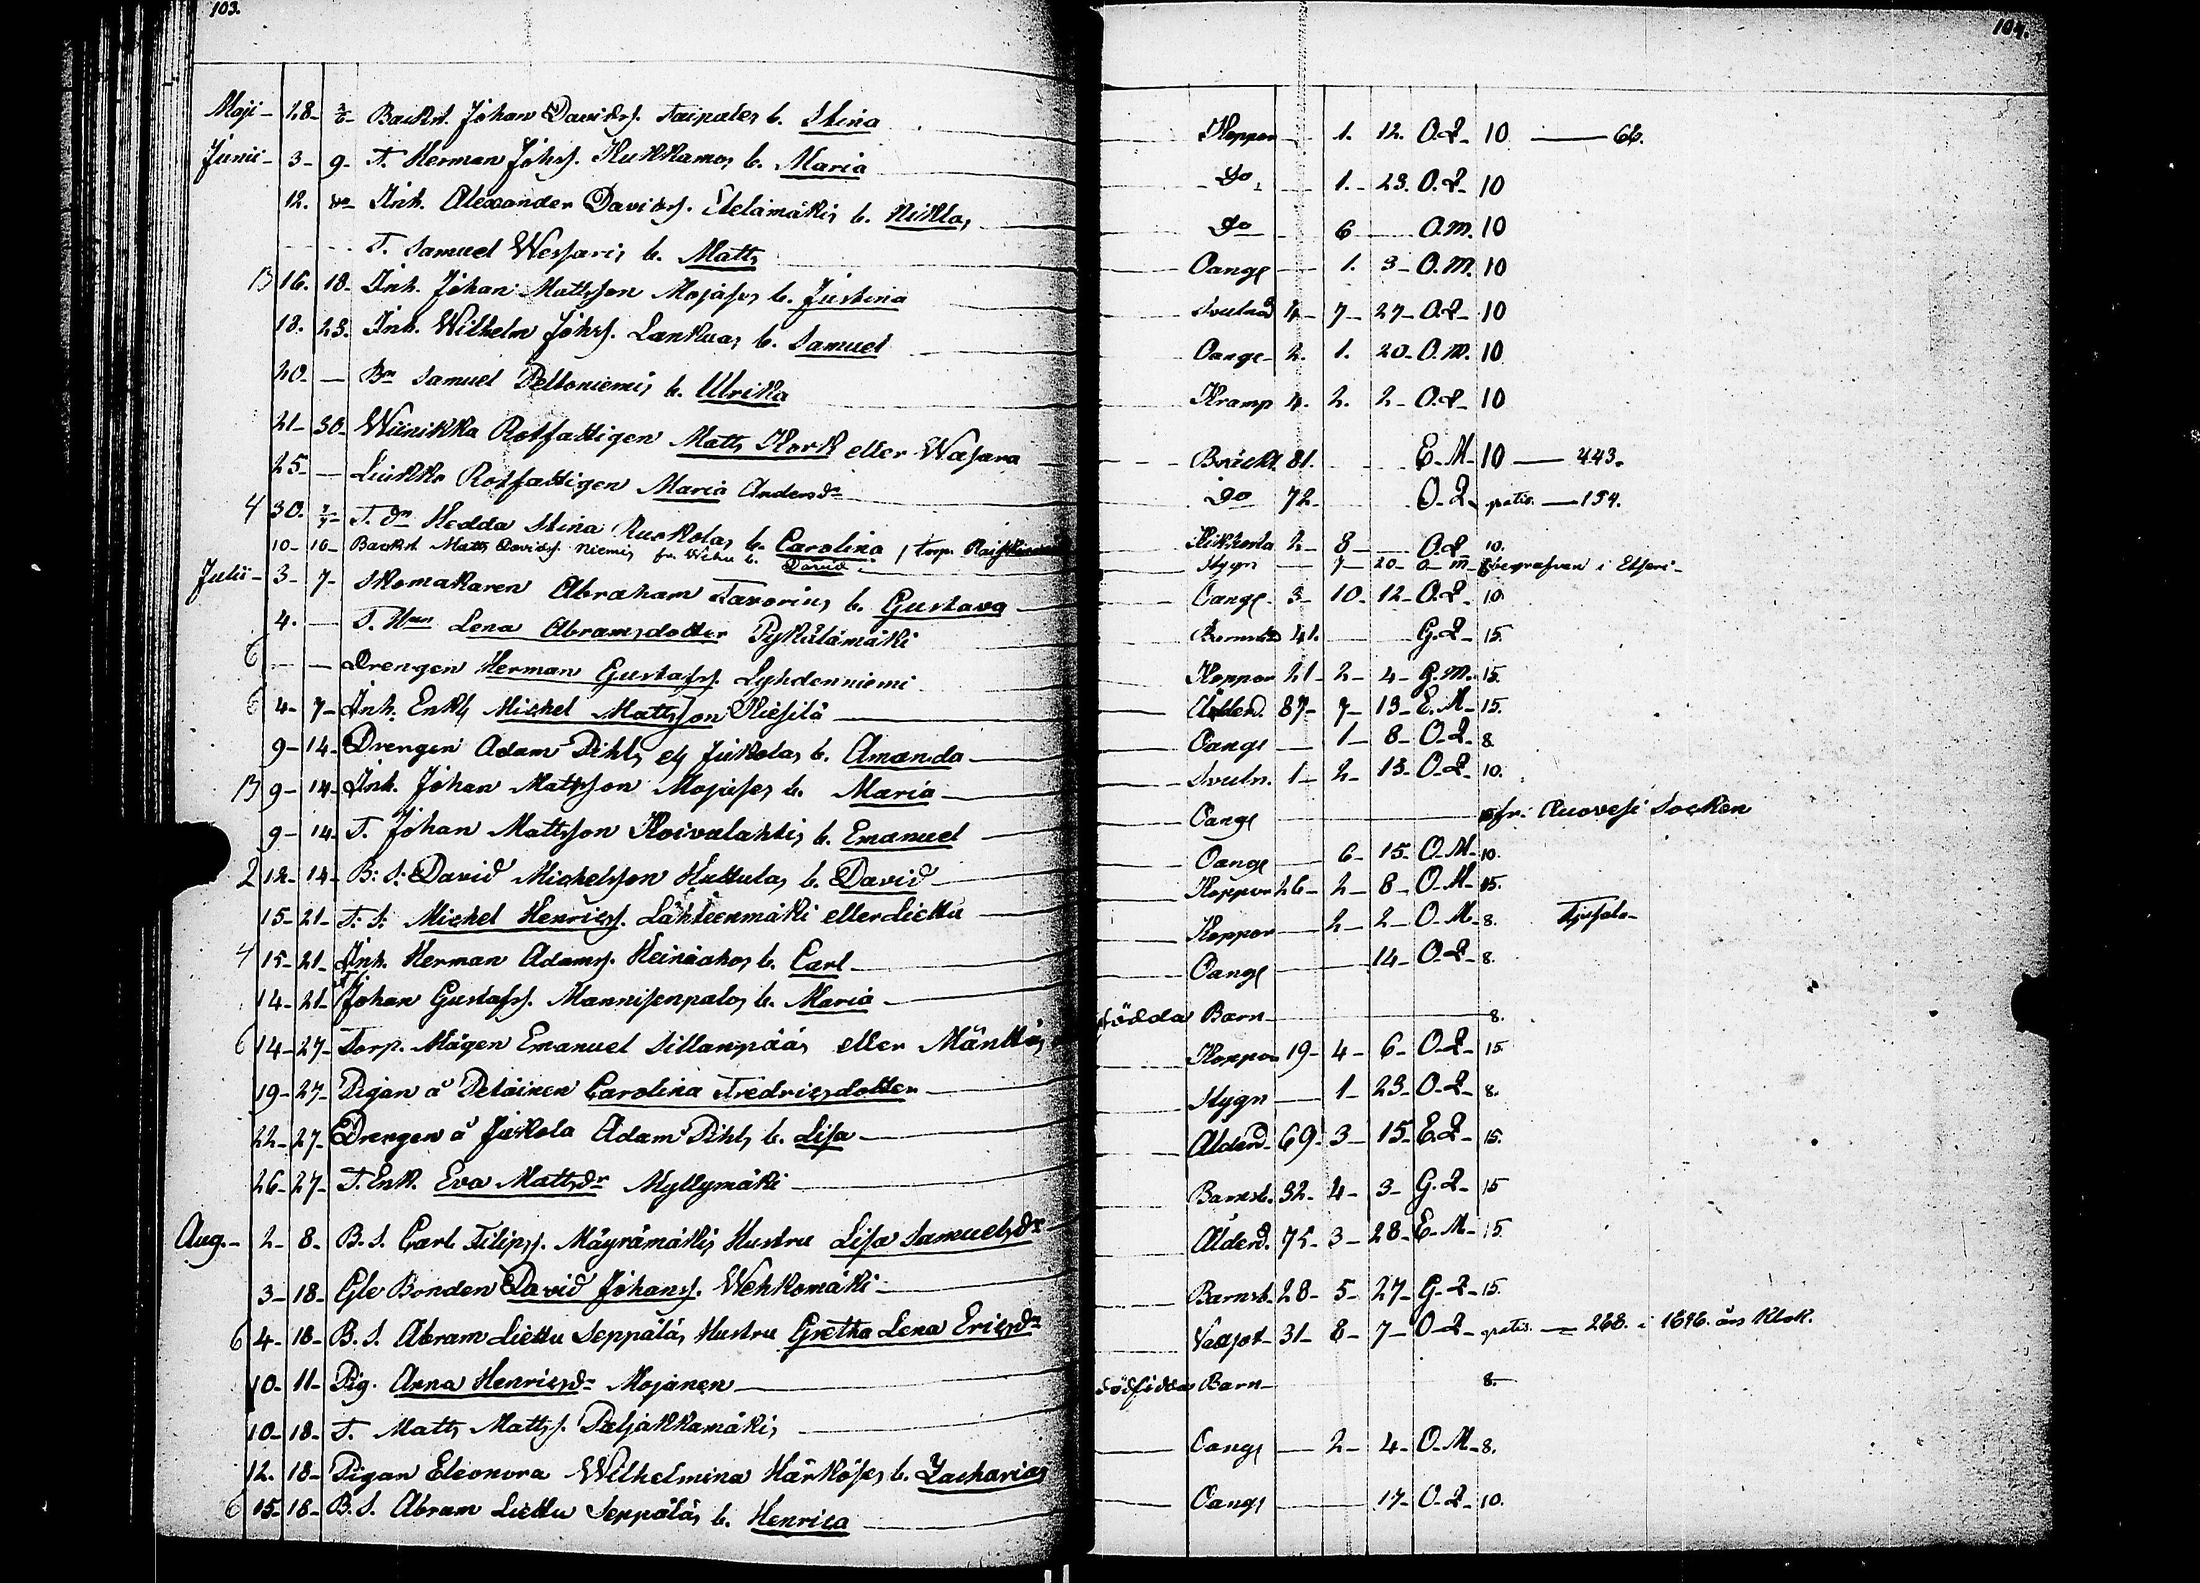 103.
Maji - 18 - 2/6 - Backst. Johan Davidss. Taipales b. Stina
Junii - 3 - 9 - T. Herman Johss. Kukkamos b. Maria
12. do Inh. Alexander Davidss. Etelämäkis b. Nicklas
T. Samuel Wessaris b. Matts
13 16. 18. Inh. Johan Mattsson Mojases b. Justina
18. 23. Inh. Wilhelm Johss. Lankuas b. Samuel
20. — Bn Samuel Peltoniemis b. Ulrika
21 - 30. Wiinikka Rotfattigen Matts Kork eller Wasara
25 — Liukko Rotfattigen Maria Andersdr
4 30. T. dr Hedda Stina Ruokolas b. Carolina / torp.
10 - 16 - Backst. Matts Davidss. Niemis b. David
Julii - 3 - 7 - Skomakaren Abraham Favorins b. Gustava
4. — T. Hun Lena Abramsdotter Pykälämäki
6 - — Drengen Herman Gustafss. Lyhdenniemi
6 4 - 7 - Inh. Enkl. Michel Mattsson Kiesilä
9 - 14 - Drengen Adam Pihls Jukolas b. Amanda
13 9 - 14 - Inh. Johan Mattsson Mojases b. Maria
9 - 14 T. Johan Mattsson Koivulahtis b. Emanuel
2 12 - 14 - B: S: David Michelsson Huttulas b. David
15 - 21 - T. S: Michel Henricss. Lähteenmäki eller Liettu
4 15 - 21 - Inh. Herman Adamss. Heinäahos b. Carl
14 - 21 - Johan Gustafss. Mannisenpalos b. Maria
6 14 - 27 - Torp. Mågen Emanuel Sillanpääs eller Mänttäs
19 - 27 - Pigan å Petäinen Carolina Fredricsdotter
22 - 27 - Drengen å Jukola Adam Pihls b. Lisa
26 - 27 - T. Enk. Eva Mattsdr Myllymäki
Aug. - 2 - 8 - B. S. Carl Filipss. Mäyrämäkis Hustru Lisa Samuelsdr
3 - 18 - Gle Bonden David Johanss. Wehkomäki
6 4 - 18 - B. S. Abram Liettu Seppäläs Hustru Gretha Lena Ericsdr
10 - 11 - Pig. Anna Henricsdr Mojanen
10 - 18 - T. Matts Mattss. Paljakkamäkis
12. 18 - Pigan Eleonora Wilhelmina Härköses b. Zacharias
6 15 - 18 - B. S. Abram Liettu Seppäläs b. Henrica
104.
Koppor — 1. 12. O.Q. 10 — 66.
Do — 1. - 23. O.Q. 10
Do 6 — O.M. 10
Oange — 1. 3 - O.M. 10
Svulnad 4 - 7 - 27 - O.Q. 10
Oange - 2. 1. 20 - O.M. 10
Kramp 4. 2. 2 - O.Q. 10
Bräckl. 81. E.M. 10 — 443.
Do 72 - O.Q. gratis. — 154.
Kikhosta 2 - 8 — O.Q. 10.
Stygn — 7 - 20 - O - M - begrafven i Etseri -
Oange 3 - 10 - 12 - O.Q. 10.
Barnsb 41. G.Q. 15.
Koppor 21 - 2 - 4 - G.M. 15.
Ålderd. 87 - 7 - 13 - E.M. 15.
Oange — 1 - 8 - O.Q. 8
Svuln. 1 - 2 - 13 - O.Q. 10.
Oange — fr. Ruovesi Socken
Oange — 6 - 15 - O.M. 10.
Koppor 26 - 2 - 8 - O.M. 15.
Koppor — 2 - 2 - O.M. 8.
Oange — 14 - O.Q. 8.
födda Barn — 8.
Koppor 19 - 4 - 6 - O.Q. 15
Stygn — 1 - 23 - O.Q. 8.
Ålderd. 69 - 3 - 15 - E.Q. 15.
Barnsb. 32 - 4 - 3 - G.Q. 15
Ålderd. 75 - 3 - 28 - E.M. 15.
Barnsb. 28 - 5 - 27 - G.Q. 15.
31 - 8 - 7 - O.Q. gratis. — 268. i års Klok.
dödfödda Barn — 8.
Oange — 2 - 4 - O.M. 8.
Oange — 17 - O.Q. 10.